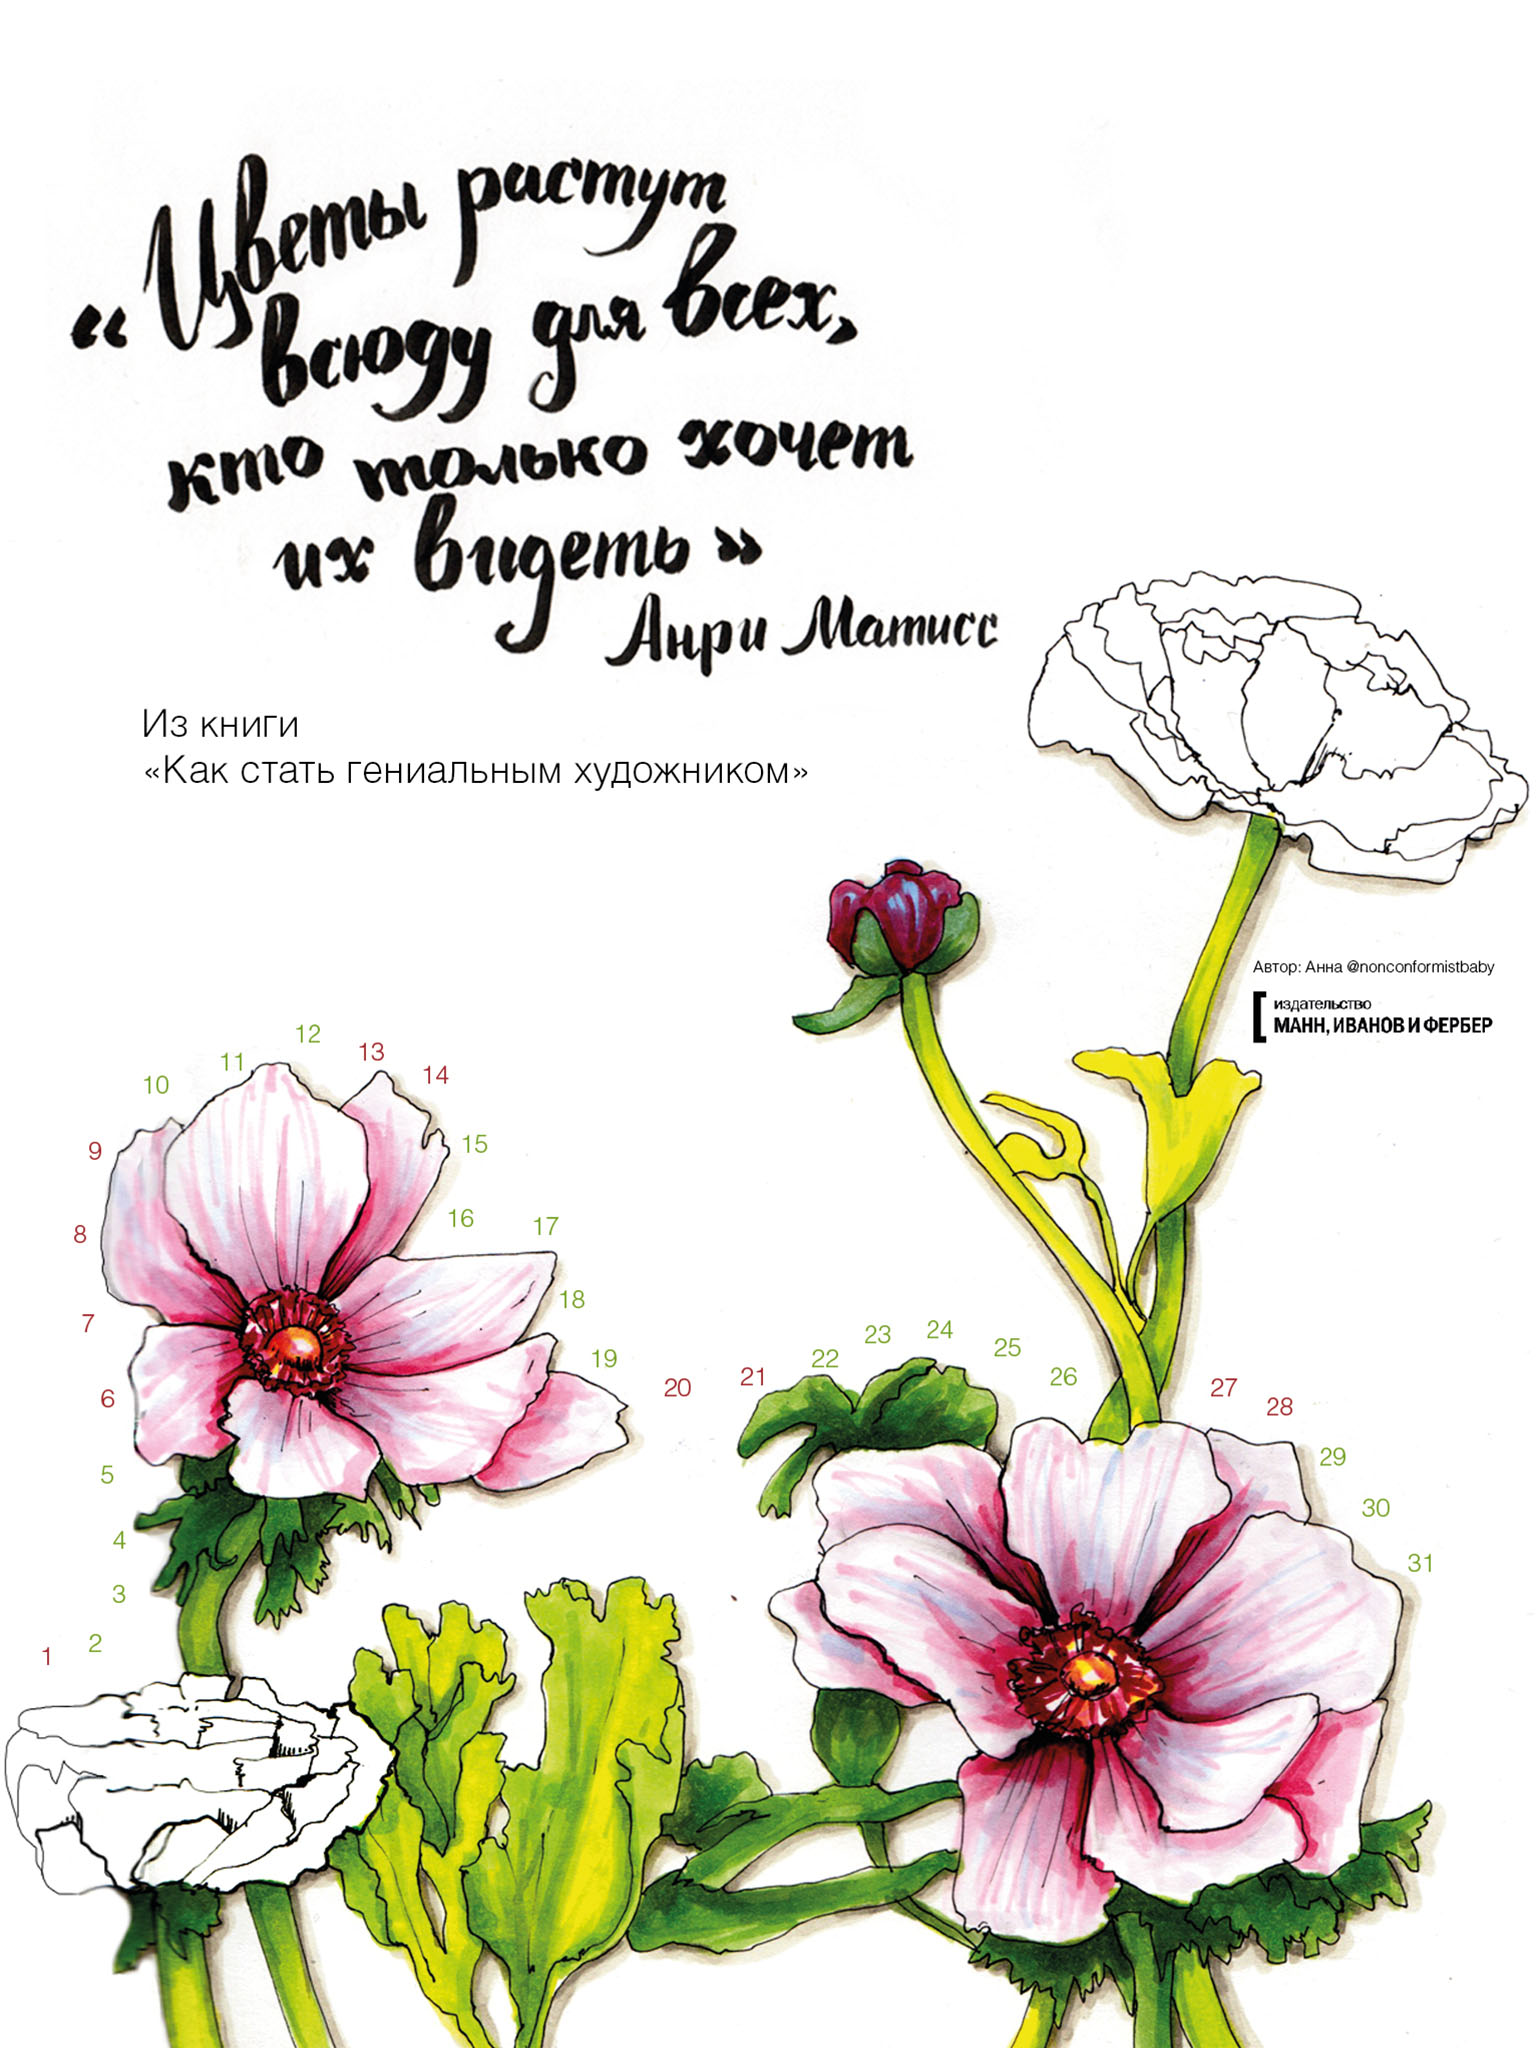 «Цветы растут
всюду для всех,
кто только хочет
их видеть»
Анри Матисс
Из книги
«Как стать гениальным художником»
Автор: Анна @nonconformistbaby
издательство
МАНН, ИВАНОВ И ФЕРБЕР
1
2
3
4
5
6
7
8
9
10
11
12
13
14
15
16
17
18
19
20
21
22
23
24
25
26
27
28
29
30
31